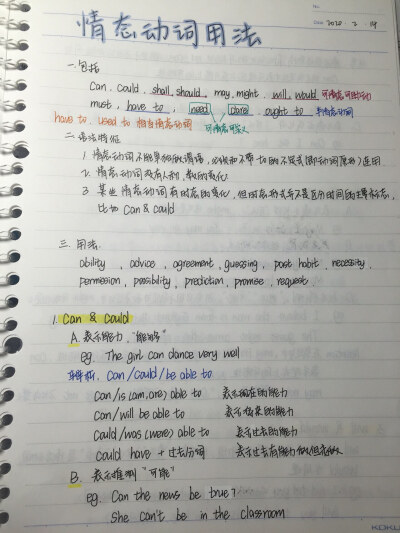 No.
Date 2020. 2. 19
情态动词用法
一.包括
Can, could, shall, should, may, might, will, would, 可情态可助动
must, have to, need, dare, ought to 半情态动词
have to, used to 相当情态动词 可情态可实义
二.语法特征
1. 情态动词不能单独做谓语，必须和不带to的不定式(即动词原形)连用
2. 情态动词没有人称，数的变化
3. 某些情态动词有时态的变化，但时态形式并不是区分时间的主要标志，
比如 Can & could
三.用法.
ability, advice, agreement, guessing, past habit, necessity,
permession, possiblity, prediction, promise, request
1. Can & Could
A. 表示能力，"能够"
eg. The girl can dance very well
辨析. Can/could/be able to
Can/is (am, are) able to 表示现在的能力
Can/will be able to 表示将来的能力
Could/was (were) able to 表示过去的能力
Could have + 过去分词 表示过去有能力做但未做
B. 表示推测 "可能"
eg. Can the news be true?
She can't be in the classroom
KOKU